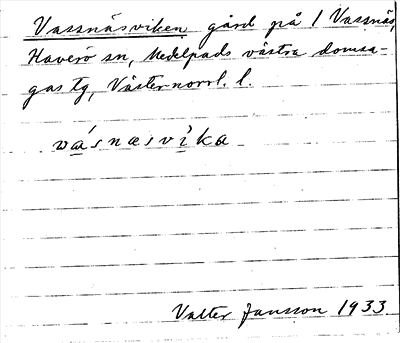 Vassnäsviken gård på 1 Vassnäs,
Haverö sn, Medelpads västra domsa-
gas tg, Västernorrl. l.
wásnæsvìka
Valter Jansson 1933